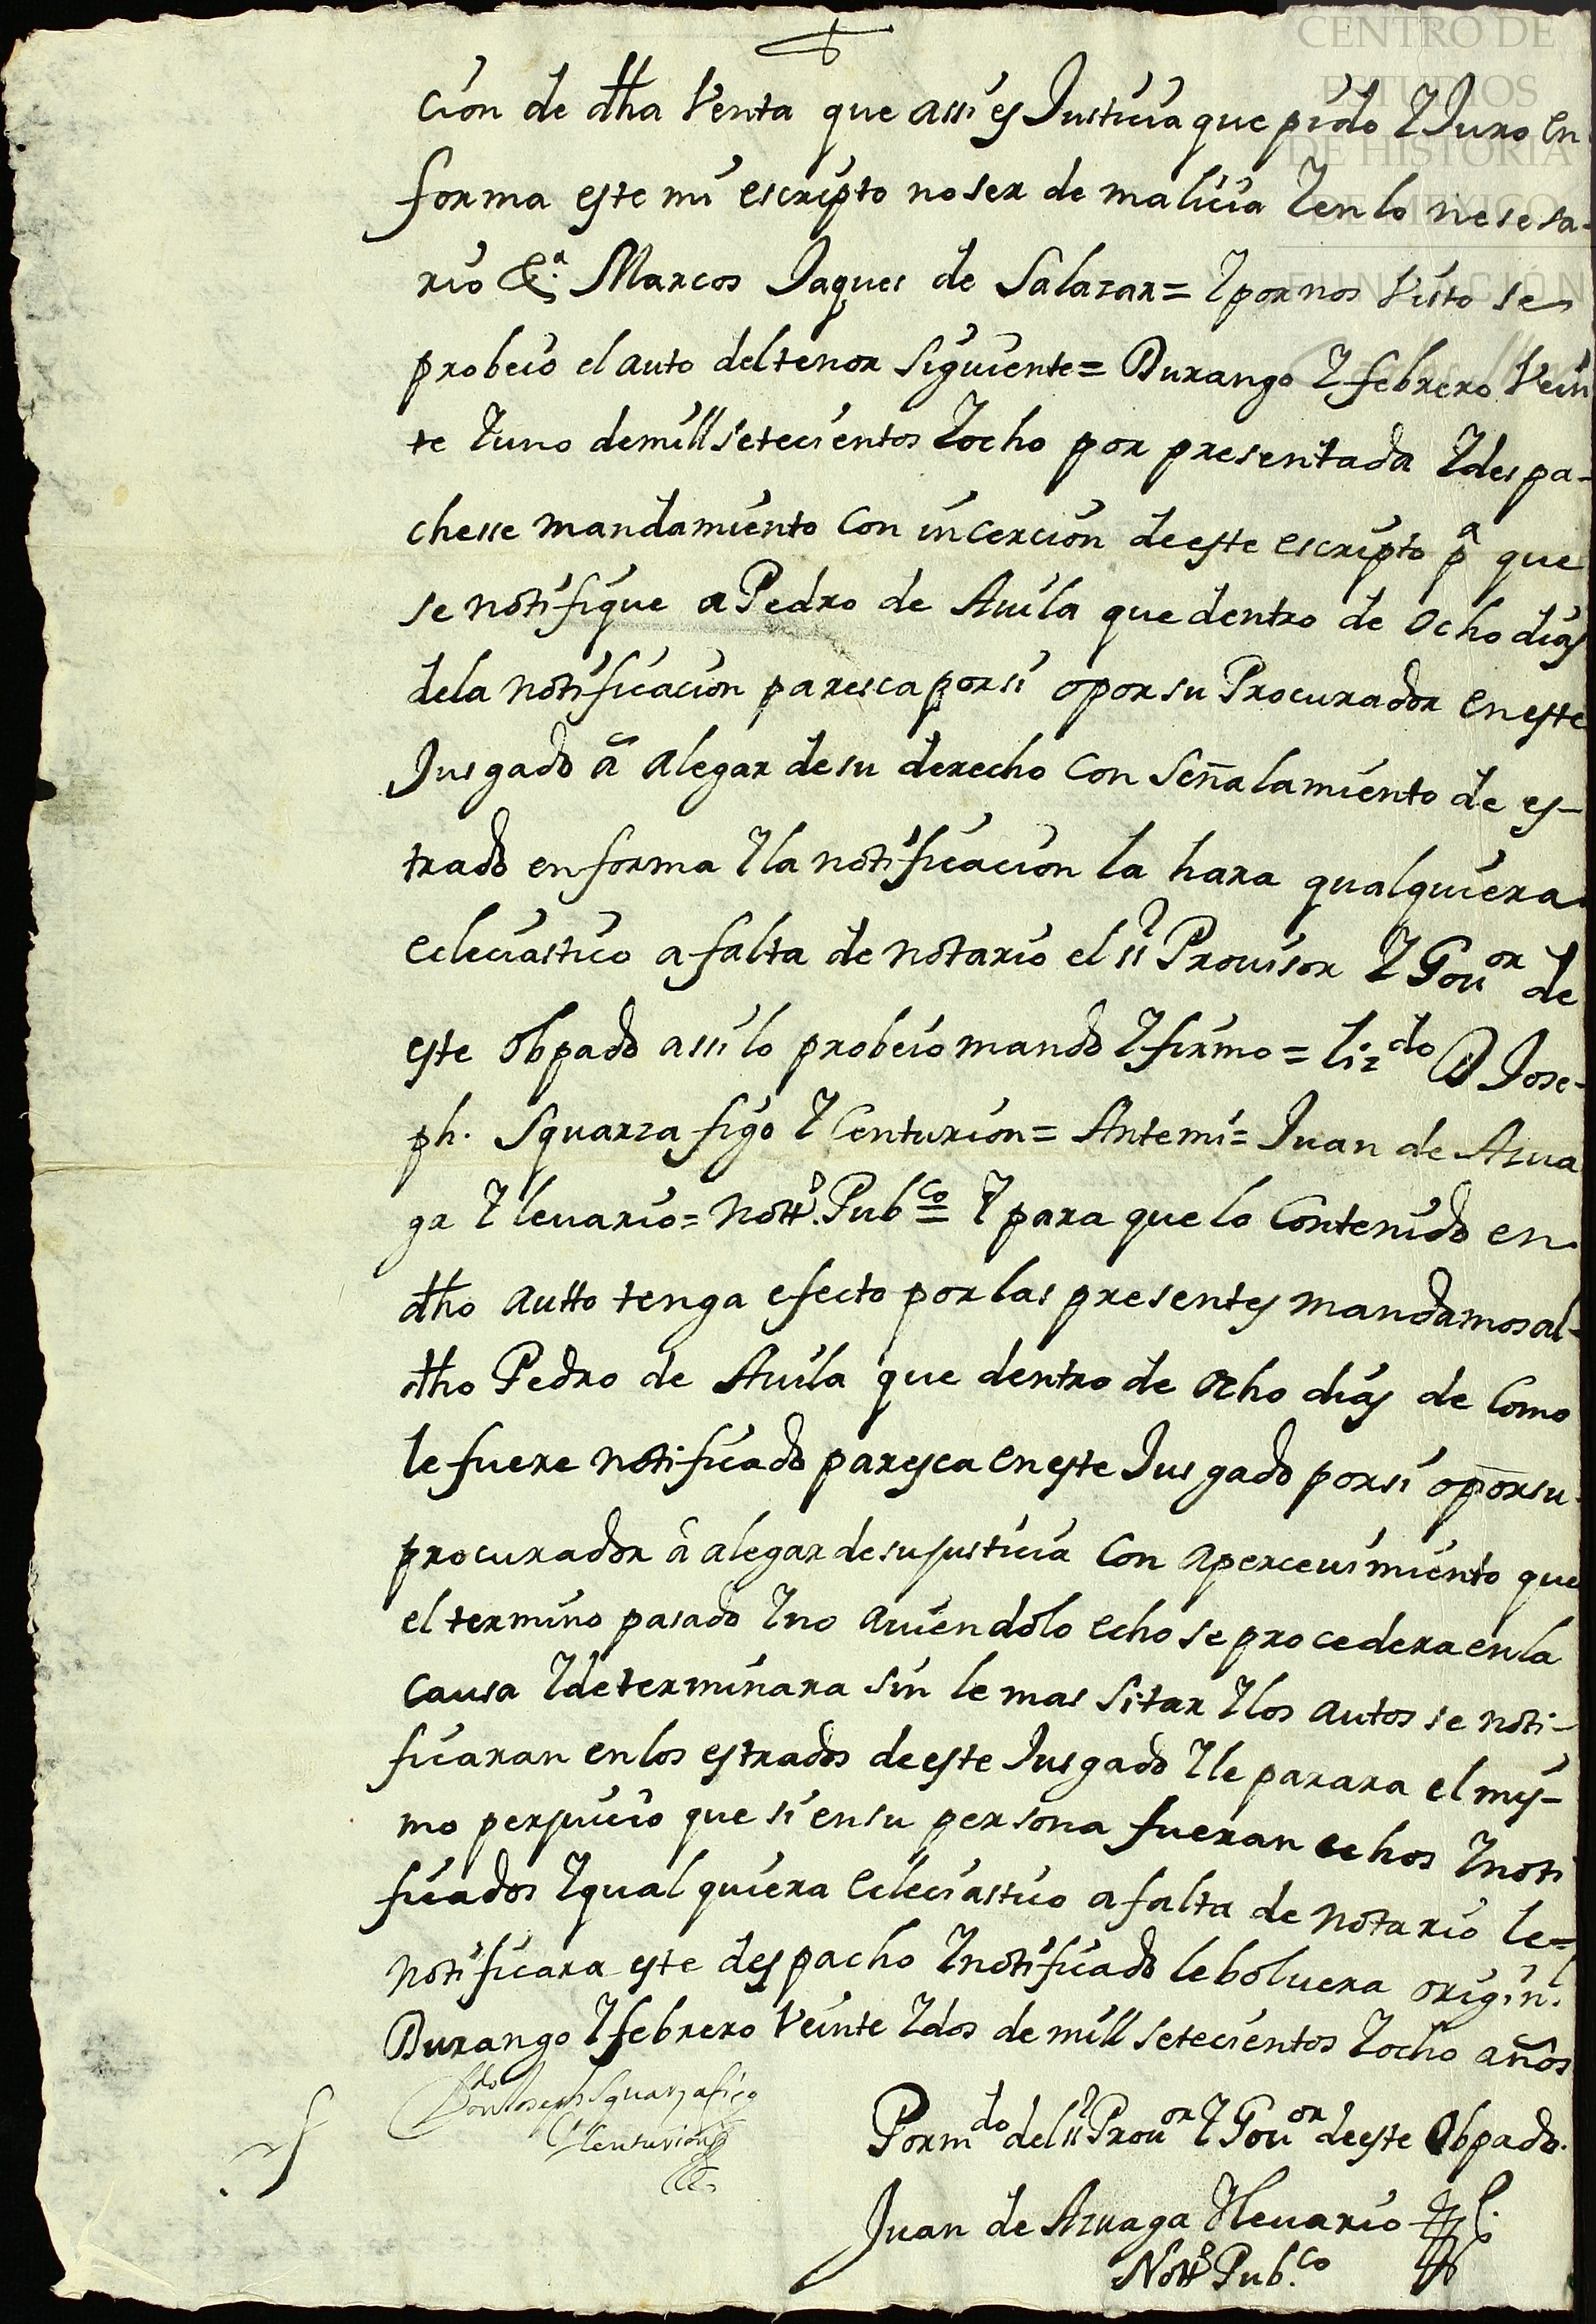 CENTRO DE
ESTUDIOS
DE HISTORIA
DE MEXICO
FUNDACIÓN
cion de dha Venta que assi es Justicia que pido Y Juro en
forma este mi escripto no ser de malicia Y en lo nesesa-
rio &.a Marcos Jaques de Salazar = Y por nos Visto se
probeio el auto del tenor siguiente = Durango Y febrero Vein
te Y uno de mill setecientos Y ocho por presentada Y despa-
chesse mandamiento con incercion de este escripto p.a que
se notifique a Pedro de Auila que dentro de ocho dias
de la notificacion paresca por si o por su Procurador en este
Jusgado â alegar de su derecho con señalamiento de es-
trado en forma Y la notificacion la hara qualquiera
Ecleciastico a falta de notario el sr Prouisor Y Gou.or de
este Obpado assi lo probeio mando Y firmo = Liz.do D Jose-
ph. Squarzafigo Y Centurion = Ante mi = Juan de Azua
ga Y leuario = Nott.o Pub.co = Y para que lo Contenido en
dho autto tenga efecto por las presentes mandamos al
dho Pedro de Auila que dentro de ocho dias de como
le fuere notificado paresca en este Jusgado por si o por su
procurador â alegar de su justicia con aperceuimiento que
el termino pasado Y no auiendolo echo se procedera en la
causa Y determinara sin le mas sitar Y los autos se noti-
ficaran en los estrados de este Jusgado Y le parara el mis-
mo perjuicio que si en su persona fueran echos Y noti
ficados Y qualquiera Eclesiastico a falta de notario le=
notificara este despacho Y notificado le boluera origin.l
Durango Y febrero Veinte Y dos de mill setecientos Y ocho años
L.do Don Joseph Squarzafigo
Y Centurion
Por m.do del sr Prou.or Y Gou.or de este Obpado.
Juan de Azuaga Y leuario
Nott.o Pub.co